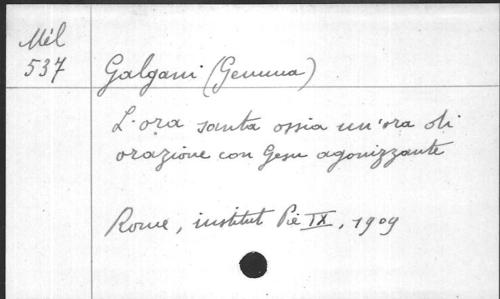 Mél
537
Galgani (Gemma)
L'ora santa ossia un'ora di
orazione con Gesu agonizzante
Rome, institut Pie IX, 1909